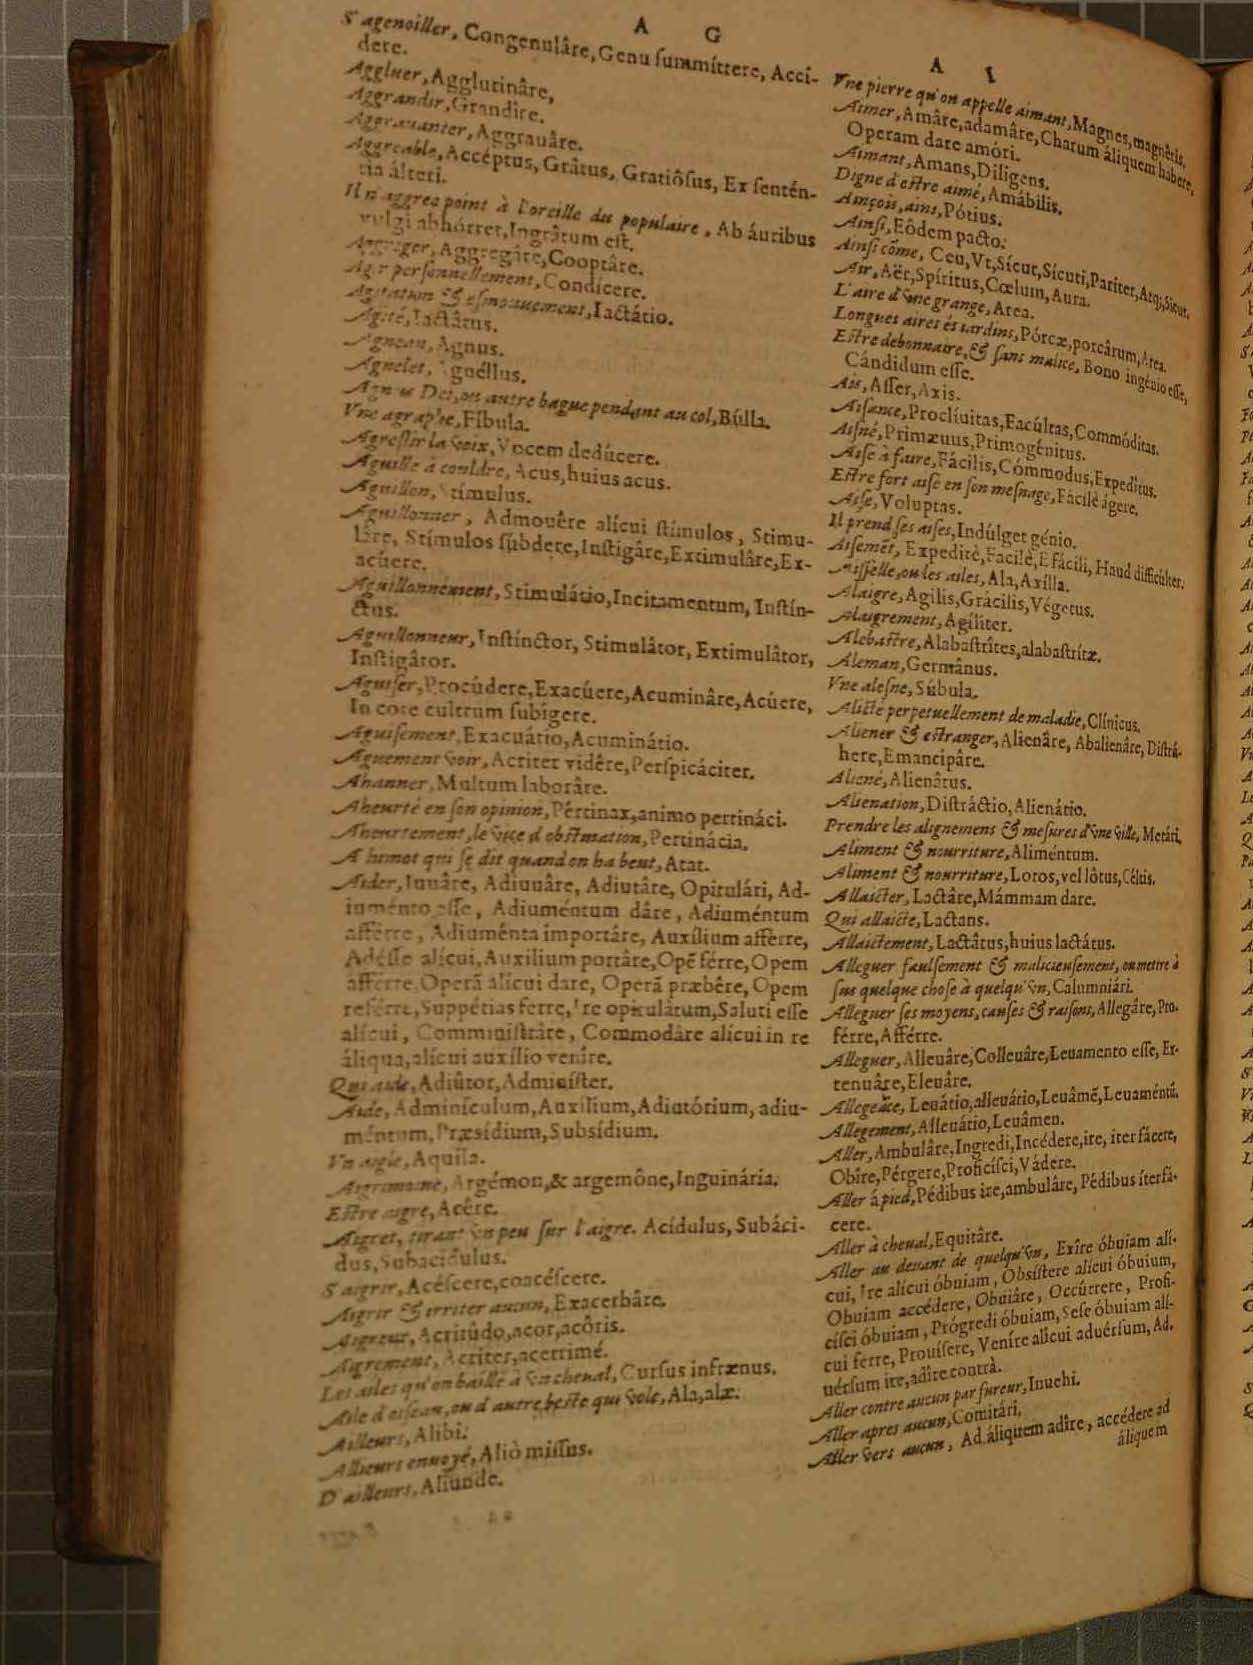 A G
S'agenoiller, Congenulâre, Genu ſummíttere, Acci-
dere.
Aggluer, Agglutinâre,
Aggrandir, Grandîre.
Aggrauanter, Aggrauâre.
Aggreable, Accéptus, Grâtus, Gratiôſus, Ex ſentén-
tia álteri.
Il n'aggree point à l'oreille du populaire, Ab áuribus
vulgi abhórret, Ingrâtum eſt.
Aggreger, Aggregâre, Cooptâre.
Agir perſonnellement, Condícere.
Agitation & eſmouuement, Iactátio.
Agité, Iactâtus.
Agneau, Agnus.
Agnelet, Agnéllus.
Agnus Dei, ou autre bague pendant au col, Búlla.
Vne agraphe, Fíbula.
Agreſlir la voix, Vocem dedúcere.
Aguille à couldre, Acus, huius acus.
Aguillon, Stímulus.
Aguillonner, Admouêre alicui ſtímulos, Stimu-
lâre, Stímulos ſúbdere, Inſtigâre, Extimulâre, Ex-
acúere.
Aguillonnement, Stimulátio, Incitamentum, Inſtín-
ctus.
Aguillonneur, Inſtínctor, Stimulâtor, Extimulâtor,
Inſtigâtor.
Aguiſer, Procúdere, Exacúere, Acuminâre, Acúere,
In cote cultrum ſubígere.
Aguiſement, Exacuátio, Acuminátio.
Aguement voir, Acriter vidêre, Perſpicáciter.
Ahanner, Multum laborâre.
Aheurté en ſon opinion, Pértinax, animo pertináci.
Aheurtement, le vice d'obſtination, Pertinácia.
A humot qui ſe dit quand on ha beut, Atat.
Aider, Iuuâre, Adiuuâre, Adiutâre, Opitulári, Ad-
iuménto eſſe, Adiuméntum dâre, Adiuméntum
afférre, Adiuménta importâre, Auxílium afférre,
Adéſſe alícui, Auxilium portâre, Opẽ férre, Opem
afférre, Operã álicui dare, Operã præbêre, Opem
reférre, Suppétias ferre, Ire opitulâtum, Saluti eſſe
alícui, Comminiſtrâre, Commodâre alícui in re
áliqua, alícui auxílio veníre.
Qui aide, Adiûtor, Adminíſter.
Aide, Adminículum, Auxílium, Adiutórium, adiu-
méntum, Præsídium, Subsídium.
Vn aigle, Aquila.
Aigrimoine, Argémon, & argemône, Inguinária.
Eſtre aigre, Acêre.
Aigret, tirant vn peu ſur l'aigre. Acídulus, Subáci-
dus, Subacidulus.
S'aigrir, Acéſcere, coacéſcere.
Aigrir & irriter aucun, Exacerbâre.
Aigreur, Acritûdo, acor, acôris.
Aigrement, Acriter, acerrimé.
Les ailes qu'on baille à vn cheual, Curſus infrænus.
Aile d'oiſeau, ou d'autre beſte qui vole, Ala, alæ.
Ailleurs, Alibi.
Allieurs enuoyé, Aliò miſſus.
D'ailleurs, Aliunde.
A I
Vne pierre qu'on appelle aimant, Magnes, magnêtis.
Aimer, Amâre, adamâre, Charum áliquem habere,
Operam dare amóri.
Aimant, Amans, Diligens.
Digne d'eſtre aimé, Amábilis.
Ainçois, ains, Pótius.
Ainſi, Eôdem pacto.
Ainſi cõme, Ceu, Vt, Sícut, Sícuti, Pariter, Atq;, Sicut.
Air, Aër, Spíritus, Cœlum, Aura.
L'aire d'vne grange, Area.
Longues aires és iardins, Pórcæ, porcârum, Area.
Eſtre debonnaire, & ſans malice, Bono ingénio eſſe,
Cándidum eſſe.
Ais, Aſſer, Axis.
Aiſance, Proclíuitas, Facúltas, Commóditas.
Aiſné, Primæuus, Primogénitus.
Aiſe à faire, Fácilis, Cómmodus, Expedîtus.
Eſtre fort aiſe en ſon meſnage, Fácilè ágere.
Aiſe, Voluptas.
Il prend ſes aiſes, Indúlget génio.
Aiſemẽt, Expeditè, Facilè, E fácili, Haud difficúlter.
Aiſſelle, ou les ailes, Ala, Axílla.
Alaigre, Agilis, Grácilis, Végetus.
Alaigrement, Agíliter.
Alebaſtre, Alabaſtrîtes, alabaſtrítæ.
Aleman, Germânus.
Vne aleſne, Súbula.
Alicté perpetuellement de maladie, Clínicus.
Aliener & eſtranger, Alienâre, Abalienâre, Diſtrá-
here, Emancipâre.
Aliené, Alienâtus.
Alienation, Diſtráctio, Alienátio.
Prendre les alignemens & meſures d'vne ville, Metári.
Aliment & nourriture, Aliméntum.
Aliment & nourriture, Lotos, vel lôtus, Céltis.
Allaicter, Lactâre, Mámmam dare.
Qui allaicte, Lactans.
Allaictement, Lactâtus, huius lactátus.
Alleguer faulſement & malicieuſement, ou mettre à
ſus quelque choſe à quelqu'vn, Calumniári.
Alleguer ſes moyens, cauſes & raiſons, Allegâre, Pro-
férre, Afférre.
Alleguer, Alleuâre, Colleuâre, Leuamento eſſe, Ex-
tenuâre, Eleuâre.
Allegeãce, Leuátio, alleuátio, Leuâmẽ, Leuaméntũ.
Allegement, Alleuátio, Leuâmen.
Aller, Ambulâre, Ingredi, Incédere, ire, iter fácere,
Obîre, Pérgere, Proficíſci, Vádere.
Aller à pied, Pédibus ire, ambulâre, Pédibus íter fá-
cere.
Aller à cheual, Equitâre.
Aller au deuant de quelqu'vn, Exîre óbuiam ali-
cui, Ire alícui óbuiam, Obsíſtere alicui óbuium,
Obuiam accédere, Obuiâre, Occúrrere, Profi-
cíſci óbuiam, Prógredi óbuiam, Seſe óbuiam alí-
cui férre, Prouíſere, Veníre alicui aduérſum, Ad-
uérſum ire, adîre contrà.
Aller contre aucun par fureur, Inuehi.
Aller apres aucun, Comitári.
Aller vers aucun, Ad áliquem adîre, accédere ad
áliquem